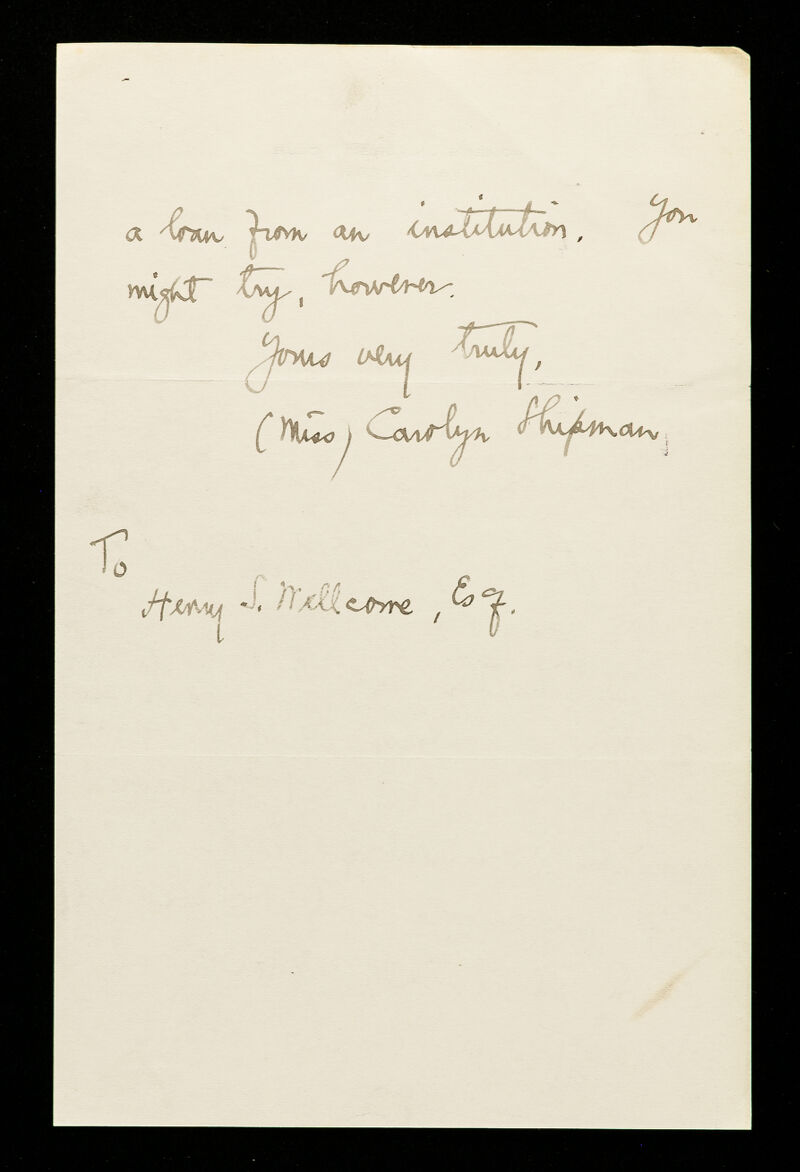 a loan from an institution. You
might try, however.
Yours very truly,
(Miss) Carolyn Shipman,
To
Henry S. Wellcome, Esq.